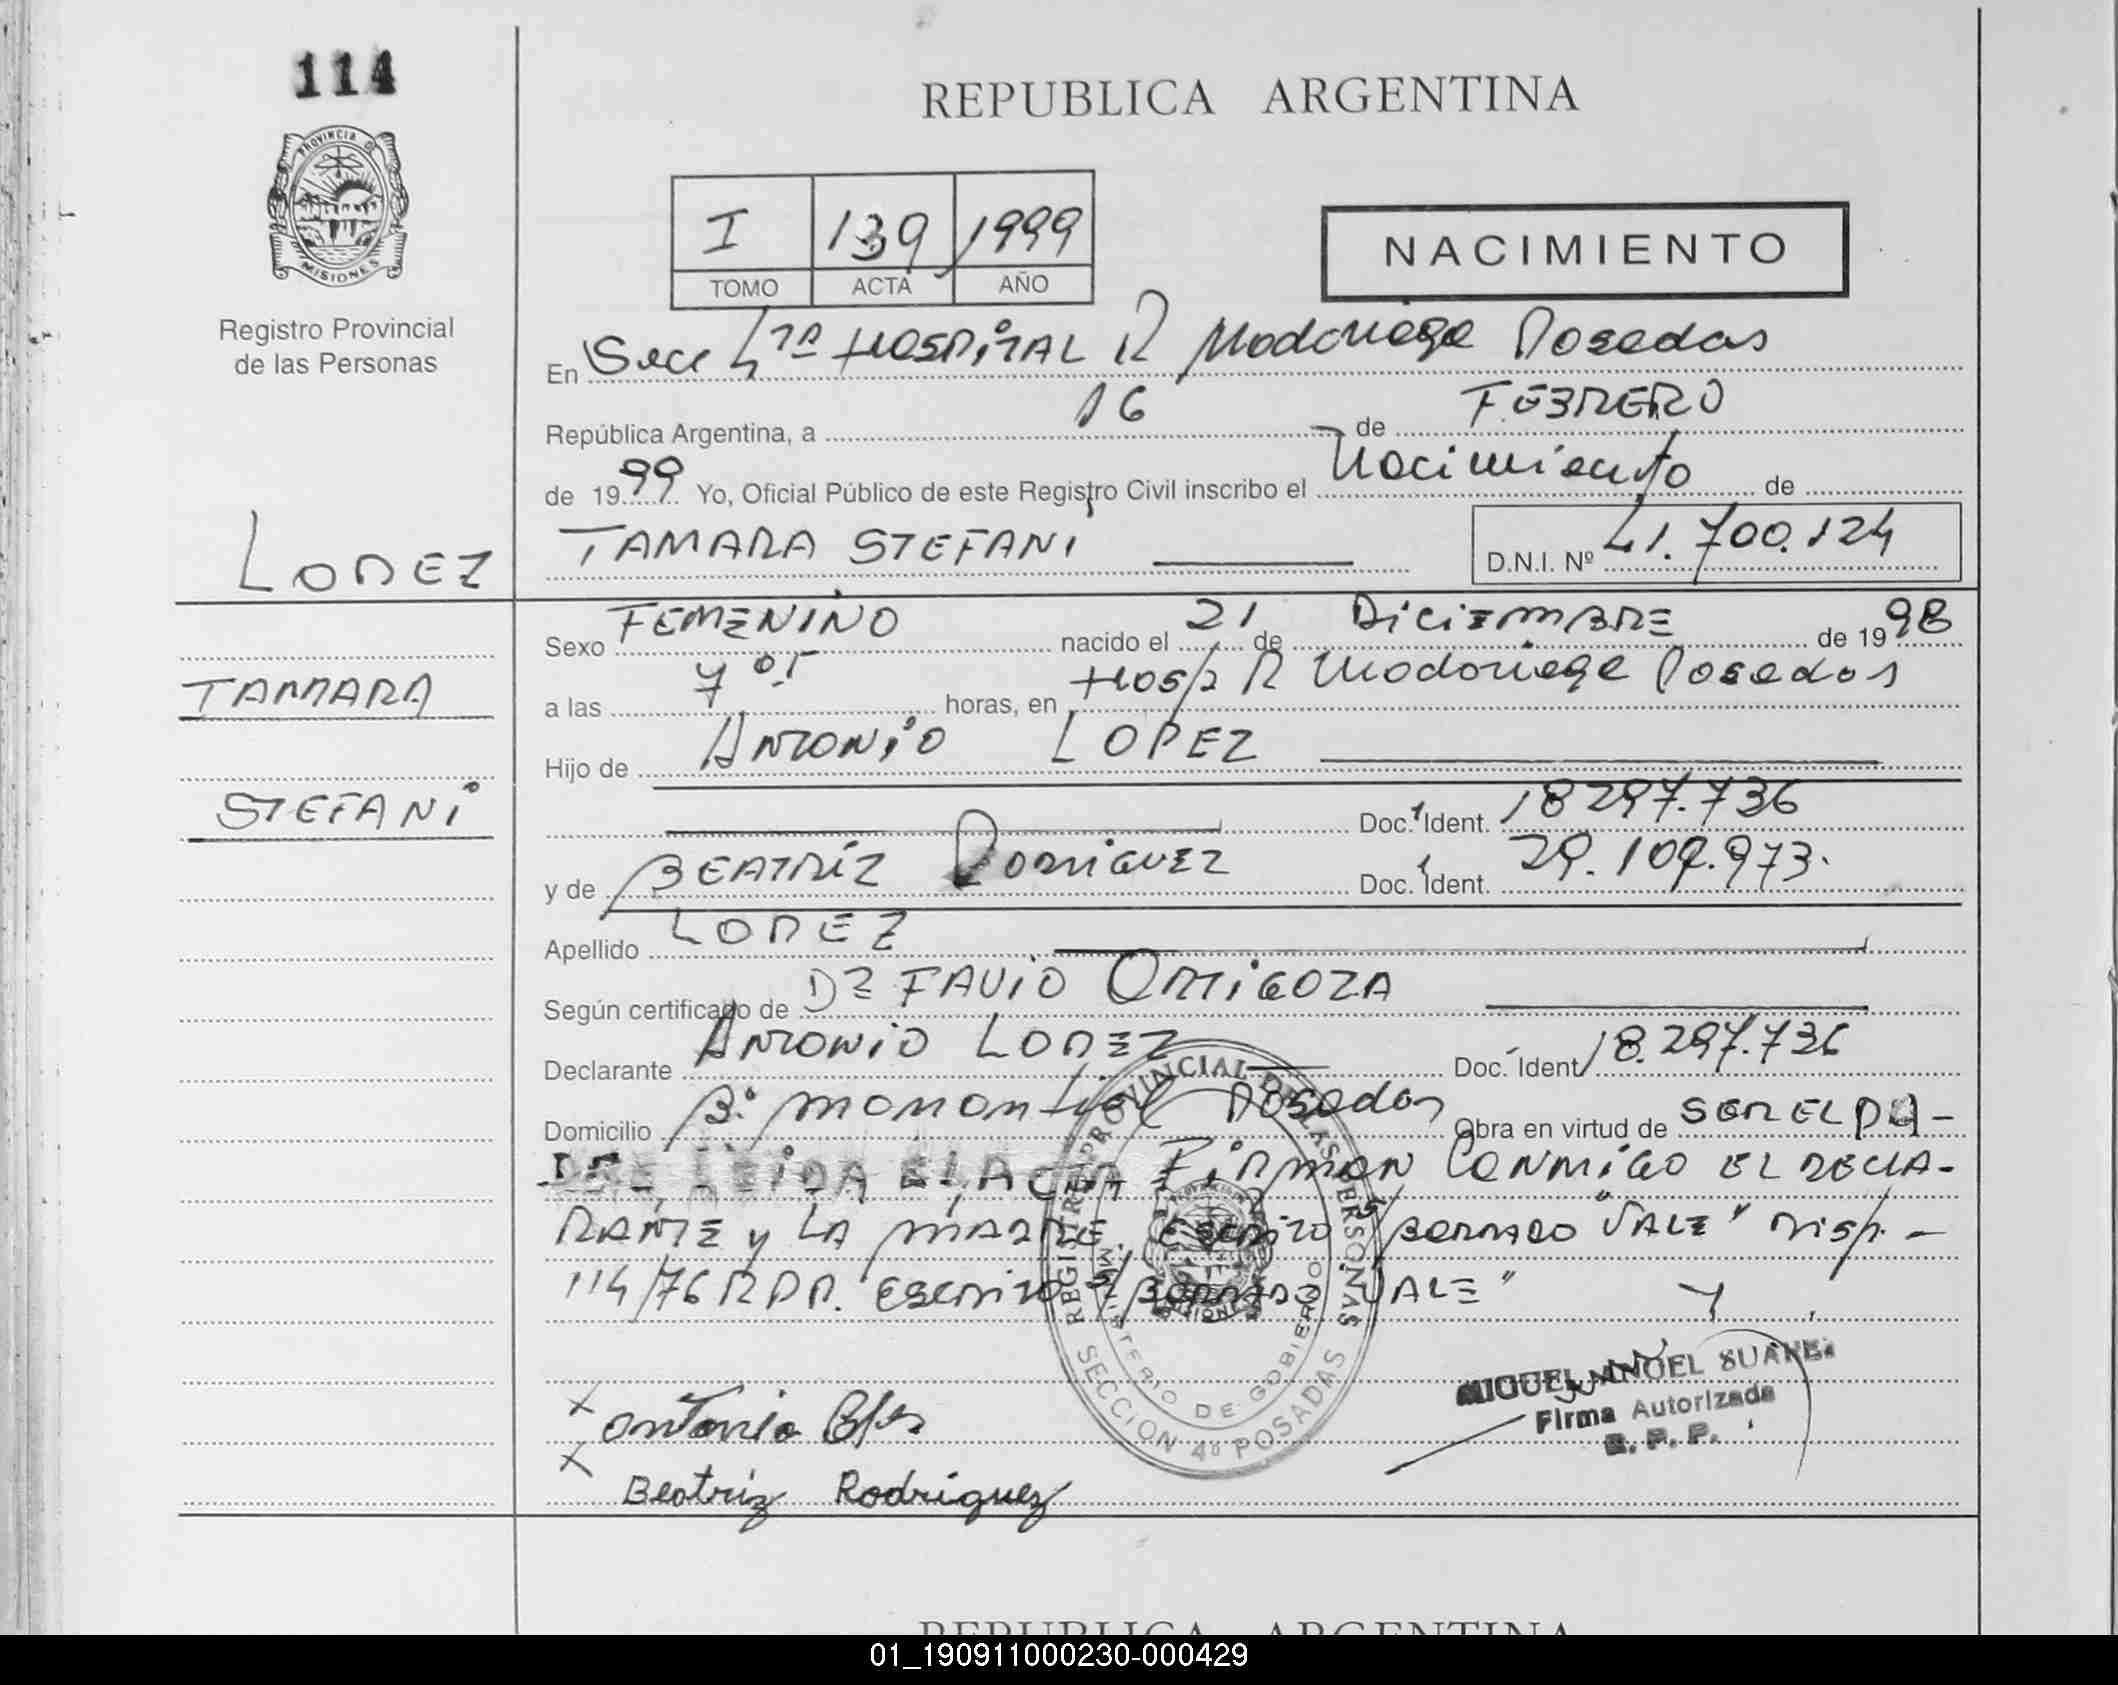 114
REPUBLICA ARGENTINA
PROVINCIA D
MISIONES
Registro Provincial
de las Personas
I 139 1999
TOMO ACTA AÑO
NACIMIENTO
En Secc 4ta HOSPITAL R Madariaga Posadas
República Argentina, a 16 de FEBRERO
de 1999 Yo, Oficial Público de este Registro Civil inscribo el Nacimiento de
TAMARA STEFANI
D.N.I. Nº 41.700.124
LOPEZ
TAMARA
STEFANI
Sexo FEMENINO nacido el 21 de DiCiEMBRE de 1998
a las 7 05 horas, en Hosp R Madariaga Posadas
Hijo de ANTONIO LOPEZ
Doc. Ident. 18297.736
y de BEATRIZ RODRIGUEZ Doc. Ident. 29.109.973.
Apellido LOPEZ
Según certificado de DE FAVIO ORTIGOZA
Declarante ANTONIO LOPEZ Doc. Ident 18.297.736
Domicilio Bº manantial Posadas Obra en virtud de SER EL PA-
DRE LEIDA EL ACTA FIRMAN CONMIGO EL DECLA-
RANTE y LA MADRE. ESCRITO S/BORRADO "VALE" DISP. -
114/76 RPP. ESCRITO S/BORRADO "VALE"
REGISTRO PROVINCIAL DE LAS PERSONAS
MINISTERIO DE GOBIERNO
SECCION 4º POSADAS
MIGUEL SUAREZ
Firma Autorizada
R. P. P.
x Antonio
x Beatriz Rodriguez
REPUBLICA ARGENTINA
01_190911000230-000429